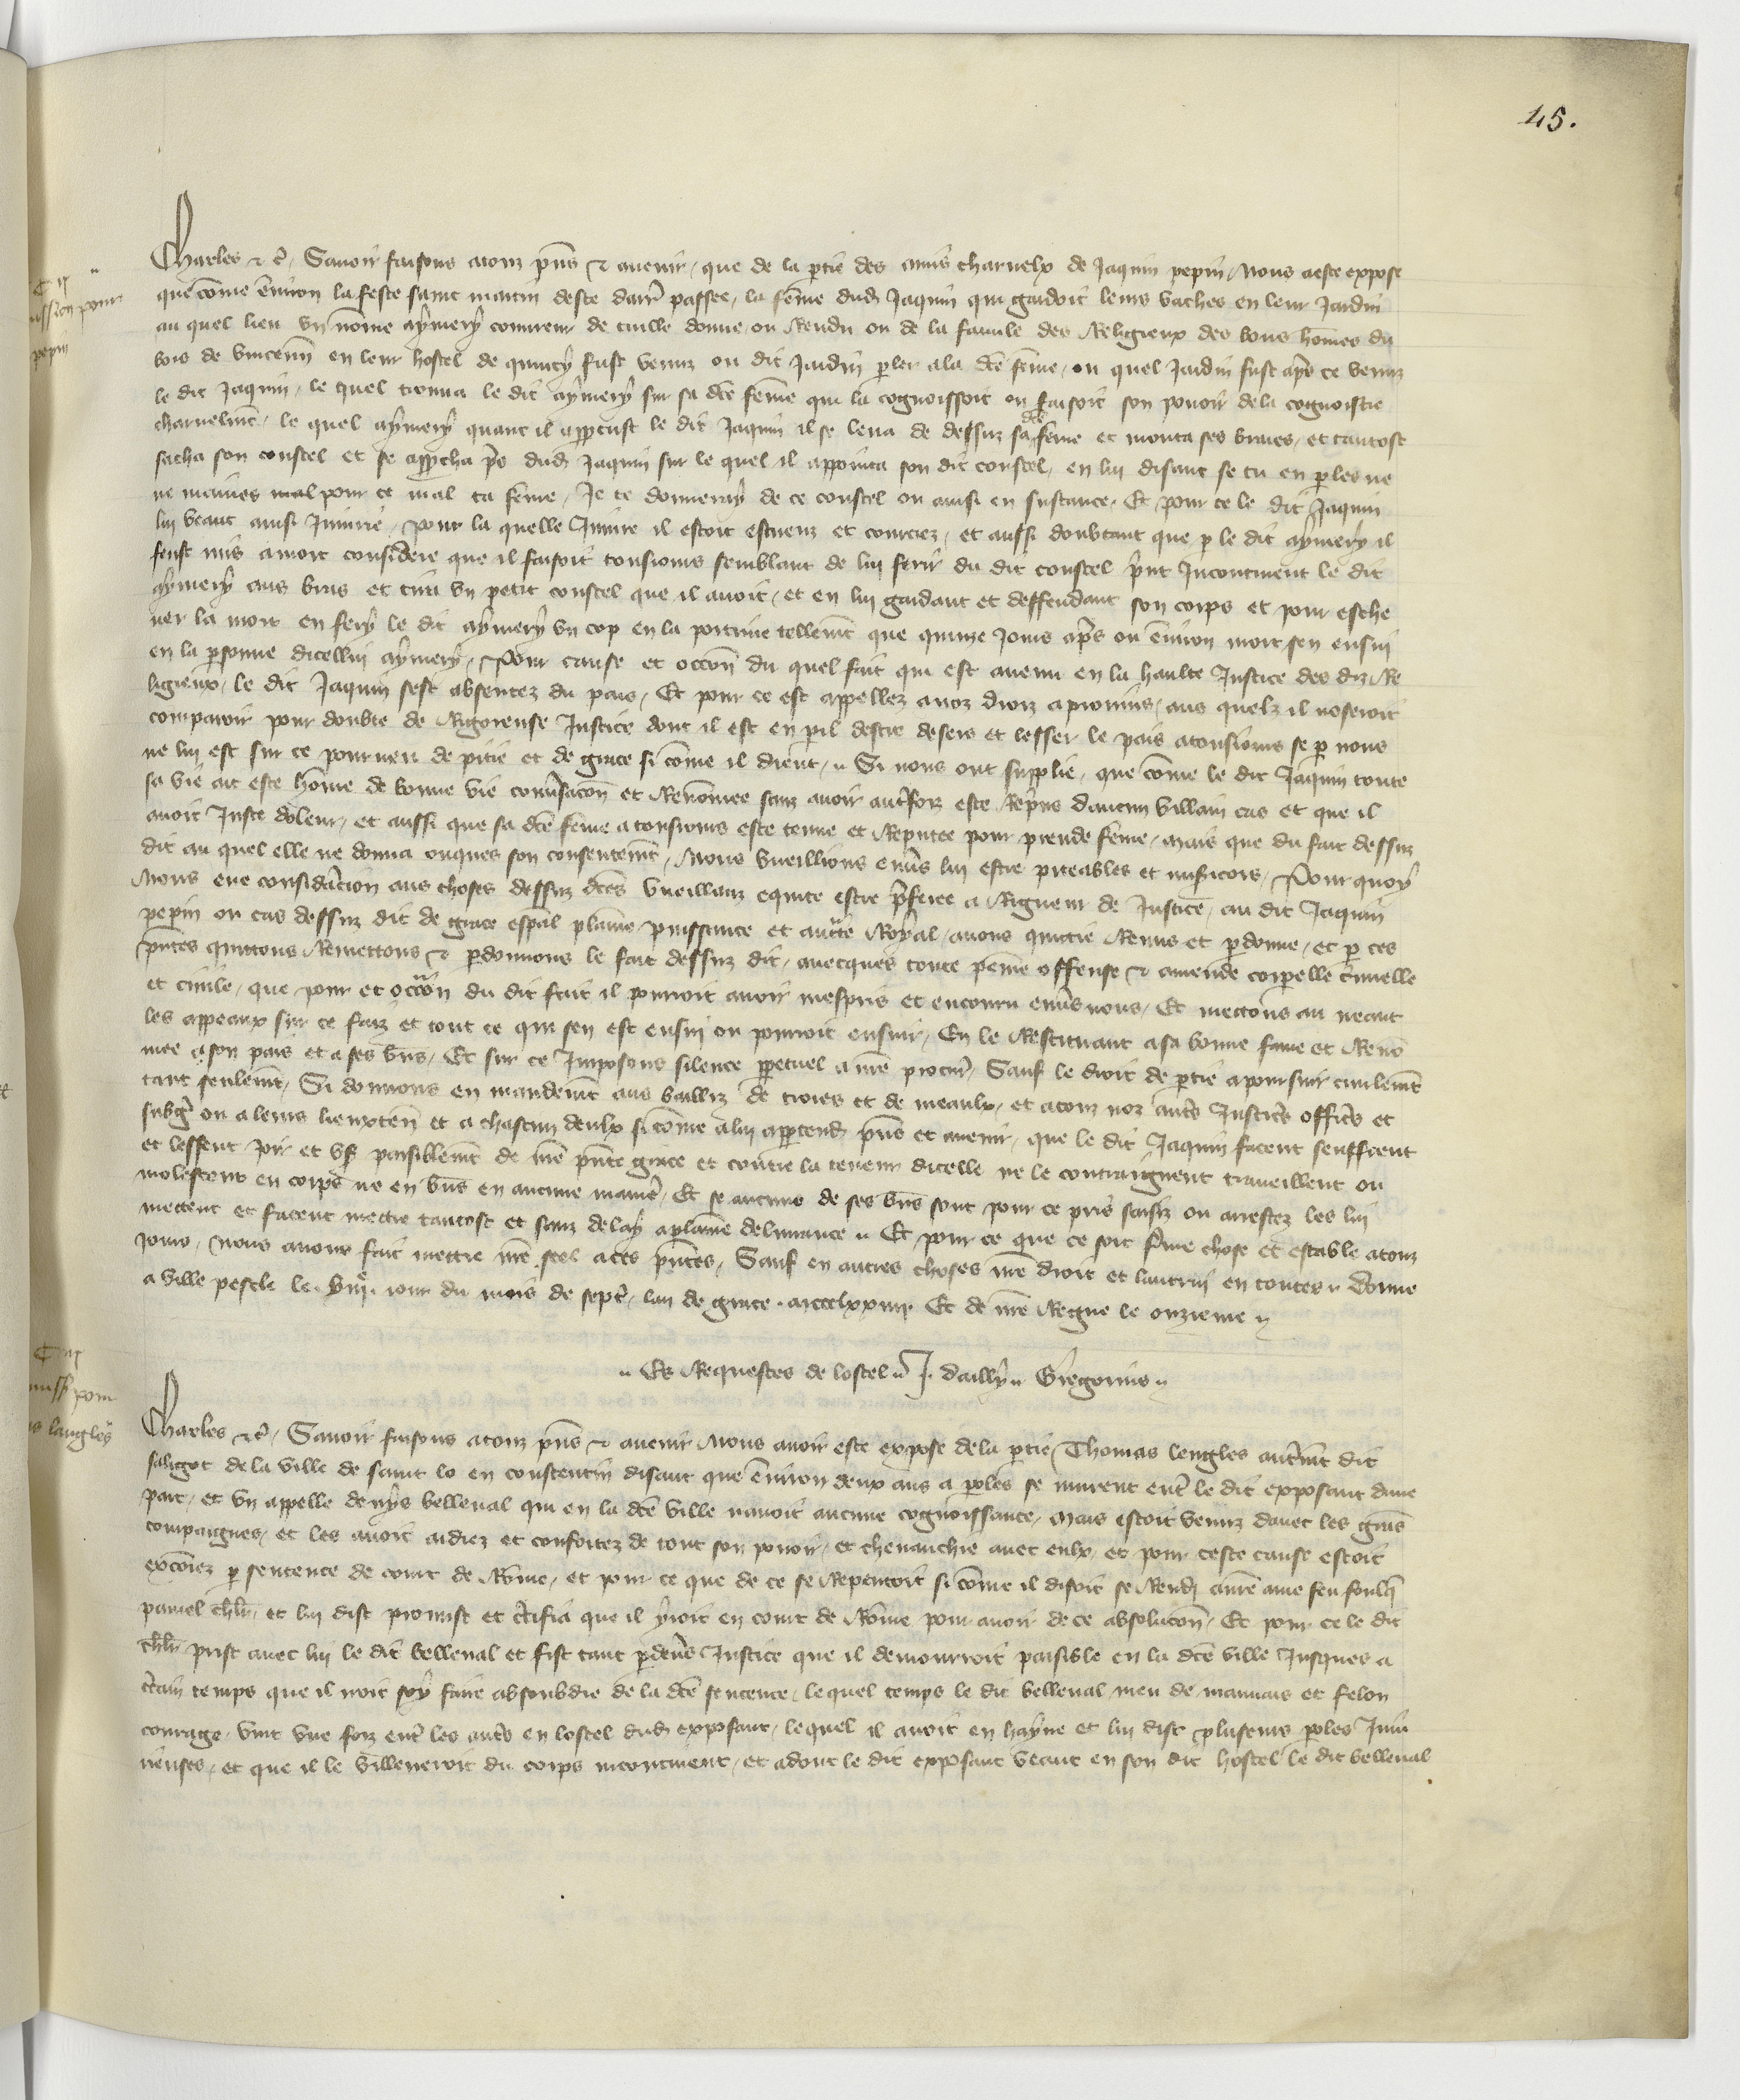 45.
Charles ⁊ c̃. Sauoir faisons a touz pn̄s ⁊ auenir, que de la ptie des amis charnelx de Jaquin pepin, Nous a este expose
que cõme enuiron la feste saint martin deste darr̃ passee, la fẽme dud Jaquin qui gardoit leurs vaches en leur Jardin
au quel lieu vn nõme aymery couureur de tuille donne, ou Rendu ou de la famile des Religieux des bons hõmes du
bois de vincenñ en leur hostel de quincy fust venuz ou dit Jardin pler a la dce fẽme, ou quel Jardin fust apr̃s ce venuz
le dit Jaquin, le quel trouua le dit aymery sur sa dce fẽme qui la cognoissoit ou faisoit son pouoir de la cognoistre
charnelmt, le quel aymery quant il appceust le dit Jaquin il se leua de dessuz sa dce fẽme et monta ses braies, et tantost
sacha son coustel et se approcha pr̃s dud Jaquin sur le quel il appointa son dit coustel, en lui disant se tu en ples ne
ne maines mal pour ce mal ta fẽme, Je te donneray de ce coustel ou ainsi en sustance. Et pour ce le dit Jaquin
lui veant ainsi Iniurié, pour la quelle Iniure il estoit esmeuz et courciez, et aussi doubtant que p le dit aymery il
feust mis a mort considere que il faisoit tousiours semblant de lui ferir du dit coustel prĩt Incontinent le dit
aymery aus bras et tira vn petit coustel que il auoit, et en lui gardant et deffendant son corps et pour esche
uer la mort en fery le dit aymery vn cop en la poitrine tellemt que quinze Jours apr̃s ou enuiron mort sen ensui
en la psonne dicellui aymery, Pour cause et occoñ du quel fait qui est auenu en la haulte Justice des diz Re
ligieux, le dit Jaquin sest absentez du pais, Et pour ce est appellez a noz droiz a prouins, aus quelz il noseroit
comparoir pour doubte de Rigoreuse Justice dont il est en pil destre desers et lesser le pais a tousiours se p nous
ne lui est sur ce pourueu de pitie et de grace si cõme il dient, Si nous ont supplie, que cõme le dit Jaquin toute
sa vie ait este hõme de bonne vie conuersacoñ et Renõmee sanz auoir autrefoiz este Repris daucun villain cas et que il
auoit Juste doleur, et aussi que sa dce fẽme a tousiours este tenue et Reputee pour preude fẽme, mais que du fait dessuz
dit au quel elle ne donna onques son consentemt, Nous vueillions enũs lui estre piteables et miscors, Pour quoy
Nous eue consideracion aus choses dessuz dces vueillanz equite estre prferee a Rigueur de Justice, au dit Jaquin
pepin ou cas dessuz dit de grace espal plaine puissance et aucte Royal, auons quittie Remis et pdonne, et p ces
pntes quittons Remettons ⁊ pdonnons le fait dessuz dit, auecques toute peine offense ⁊ amende corpelle crimelle
et ciuile, que pour et occoñ du dit fait il pourroit auoir mespris et encouru enũs nous, Et mettons au neant
les appeaux sur ce faiz et tout ce qui sen est ensui ou pourroit ensuir, En le Restituant a sa bonne fame et Renõ
mee a son pais et a ses bñs, Et sur ce Imposons silence ppetuel a nre̅ procur̃, Sauf le droit de ptie a poursuir ciuilemt
tant seulemt, Si donnons en mandemt aus bailliz de troies et de meaulx, et a touz noz aut̃s Justic̃rs offic̃rs et
subgr̃ ou a leurs lieuxteñ et a chascun deulx si cõme a lui apptend pñs et auenir, que le dit Jaquin facent seuffrent
et lessent Joir et vser paisiblemt de nr̃e pñte grace et contre la teneur dicelle ne le contraignent traueillent ou
molestent en corps ne en bñs en aucune maniere, Et se aucuns de ses bñs sont pour ce pris saisiz ou arrestez les lui
mettent et facent mettre tantost et sanz delay a plaine deliurance. Et pour ce que ce soit ferme chose et estable a touz
jours, Nous auons fait mettre nr̃e scel a ces pñtes, Sauf en autres choses nr̃e droit et lautrui en toutes. Donne
a ville pescle le. viije. iour du mois de sept̃, lan de grace. mccclxxiiij. Et de nr̃e Regne le onzieme.
Es Requestes de lostel. J. dailly. Gregorius.
Charles ⁊c̃. Sauoir faisons a touz pñs ⁊ auenir Nous auoir este expose de la ptie Thomas lengles autremt dit
saligot de la ville de saint lo en coustentin disant que enuiron deux ans a poles se murent entr̃ le dit exposant dune
part, et vn appelle denys bellenal qui en la dce ville nauoit aucune cognoissance, Mais estoit venuz dauec les gñs
compaignes, et les auoit aidiez et confortez de tout son pouoir, et cheuauchie auec eulx, et pour ceste cause estoit
excõiez p sentence de court de Rõme, et pour ce que de ce se Repentoit si cõme il disoit se Rendi a nr̃e ame feu foulq̃
painel chlr̃, et lui dist promist et c̃tifia que il yroit en court de Rõme pour auoir de ce absolucoñ, Et pour ce le dit
chlr̃ prist auec lui le dit bellenal et fist tant pdeuers Justice que il demourroit paisible en la dce ville Jusques a
c̃tain temps que il iroit soy faire absouldre de la dce sentence, lequel temps le dit bellenal meu de mauuais et felon
courage, vint vne foiz entr̃ les aut̃s en lostel dud exposant, lequel il auoit en hayne et lui dist pluseurs poles Iniu
rieuses, et que il le villeneroit du corps incontinent, et adont le dit exposant veant en son dit hostel le dit bellenal